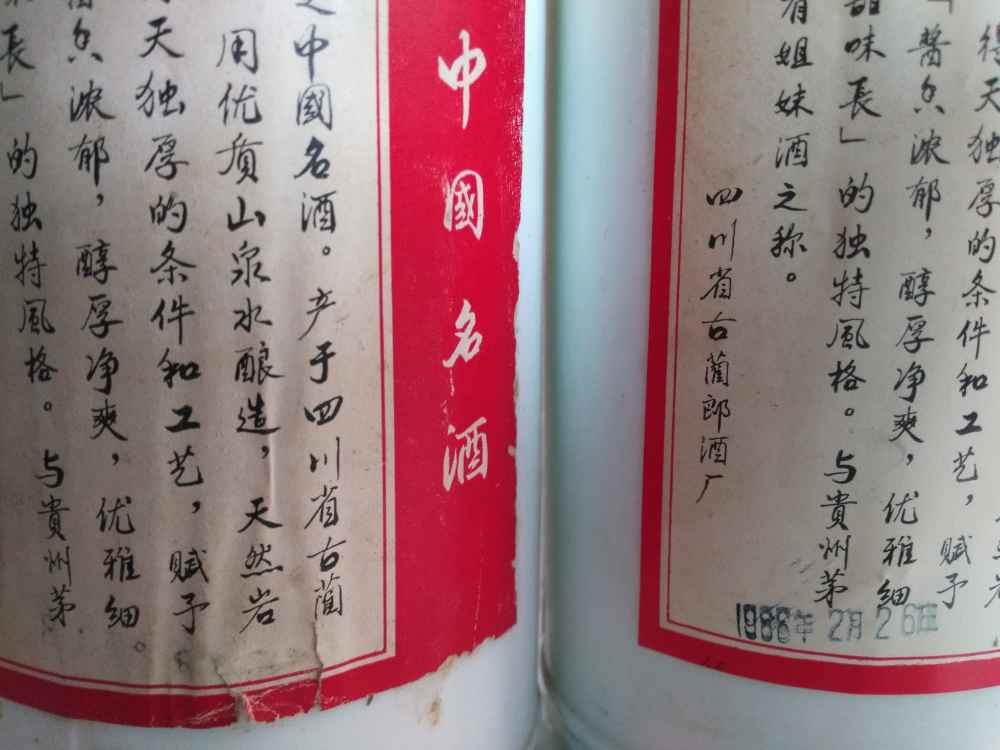 中國名酒
中國名酒。产于四川省古蔺
用优质山泉水酿造，天然岩
天独厚的条件和工艺，赋予
香浓郁，醇厚净爽，优雅细
長」的独特風格。与貴州茅
得天独厚的条件和工艺，赋予
「醬香浓郁，醇厚净爽，优雅细
甜味長」的独特風格。与貴州茅
有姐妹酒之称。
四川省古蔺郎酒厂
1986年2月26